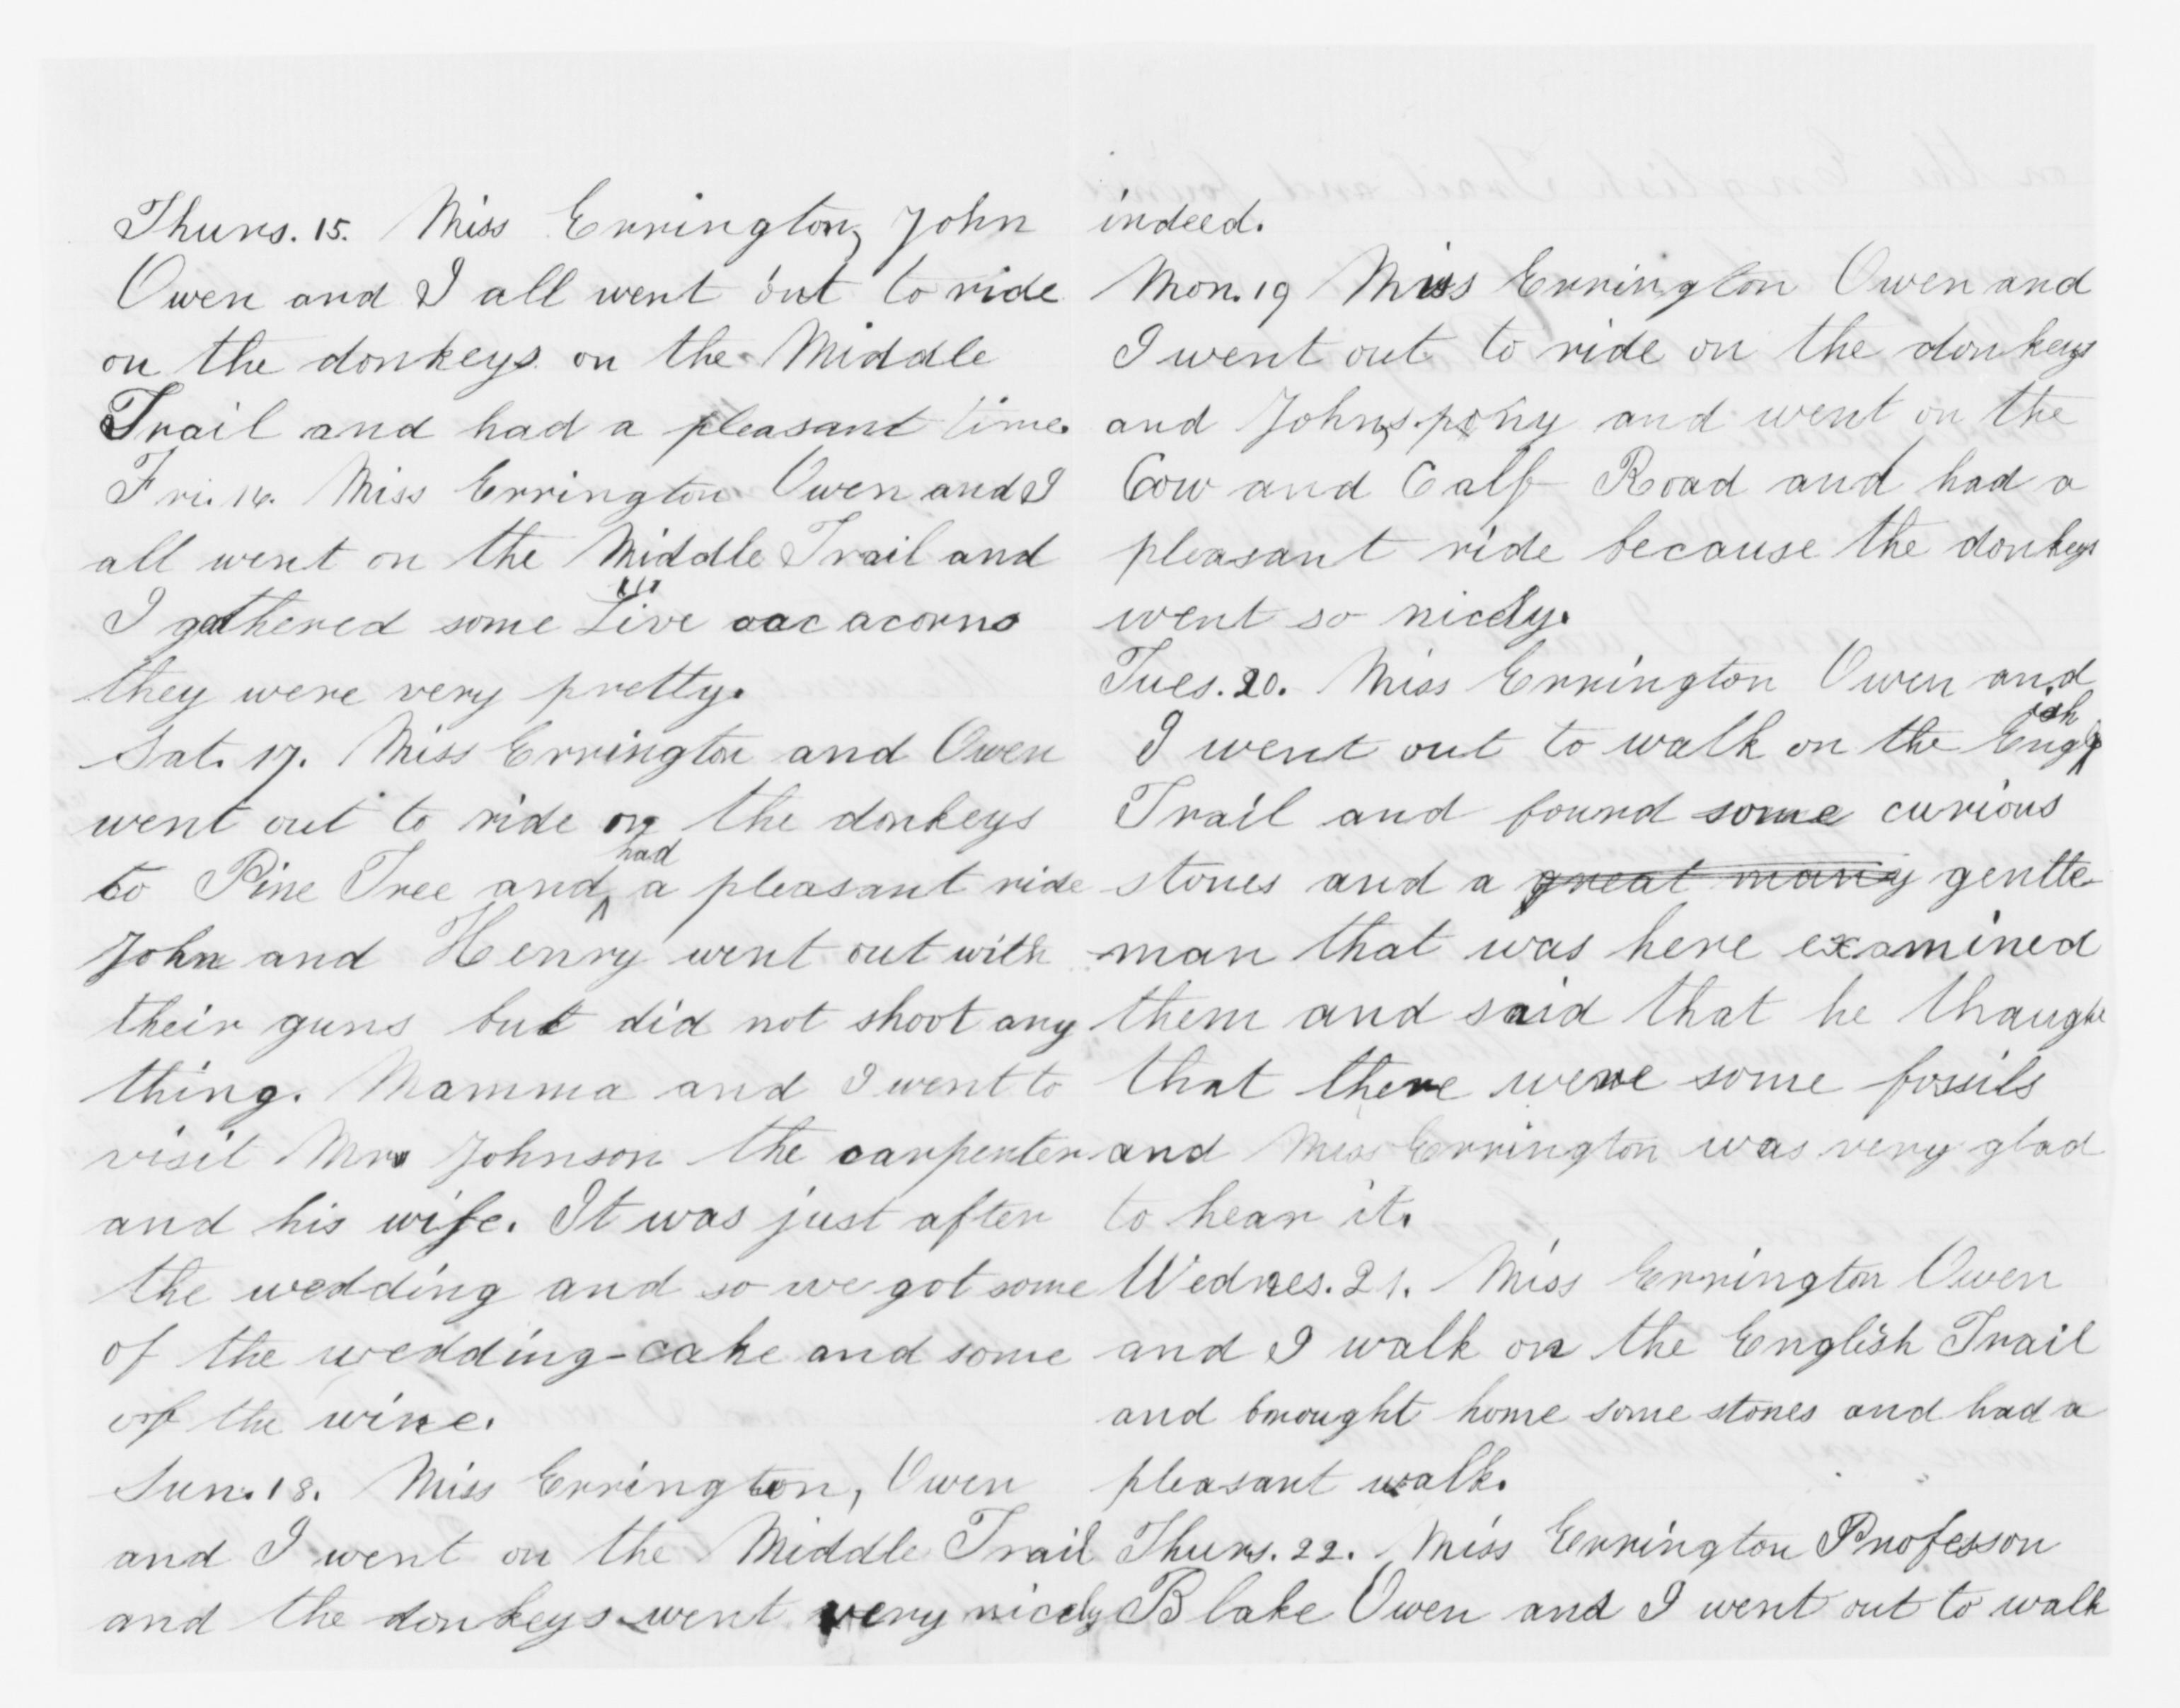 Thurs. 15. Miss Errington, John
Owen and I all went out to ride
on the donkeys on the Middle
Trail and had a pleasant time.
Fri. 16. Miss Errington Owen and I
all went on the Middle Trail and
I gathered some Live oac acorns
they were very pretty.
Sat. 17. Miss Errington and Owen
went out to ride on the donkeys
to Pine Tree and had a pleasant ride
John and Henry went out with
their guns but did not shoot any
thing. Mamma and I went to
visit Mr. Johnson the carpenter
and his wife. It was just after
the wedding and so we got some
of the wedding-cake and some
of the wine.
Sun. 18. Miss Errington, Owen
and I went on the Middle Trail
and the donkeys went very nicely
indeed.
Mon. 19 Miss Errington Owen and
I went out to ride on the donkeys
and John,s pony and went on the
Cow and Calf Road and had a
pleasant ride because the donkeys
went so nicely.
Tues. 20. Miss Errington Owen and
I went out to walk on the English
Trail and found some curious
stones and a great many gentle-
man that was here examined
them and said that he thaught
that there were some fossils
and Miss Errington was very glad
to hear it.
Wednes. 21. Miss Errington Owen
and I walk on the English Trail
and brought home some stones and had a
pleasant walk.
Thurs. 22. Miss Errington Professor
Blake Owen and I went out to walk